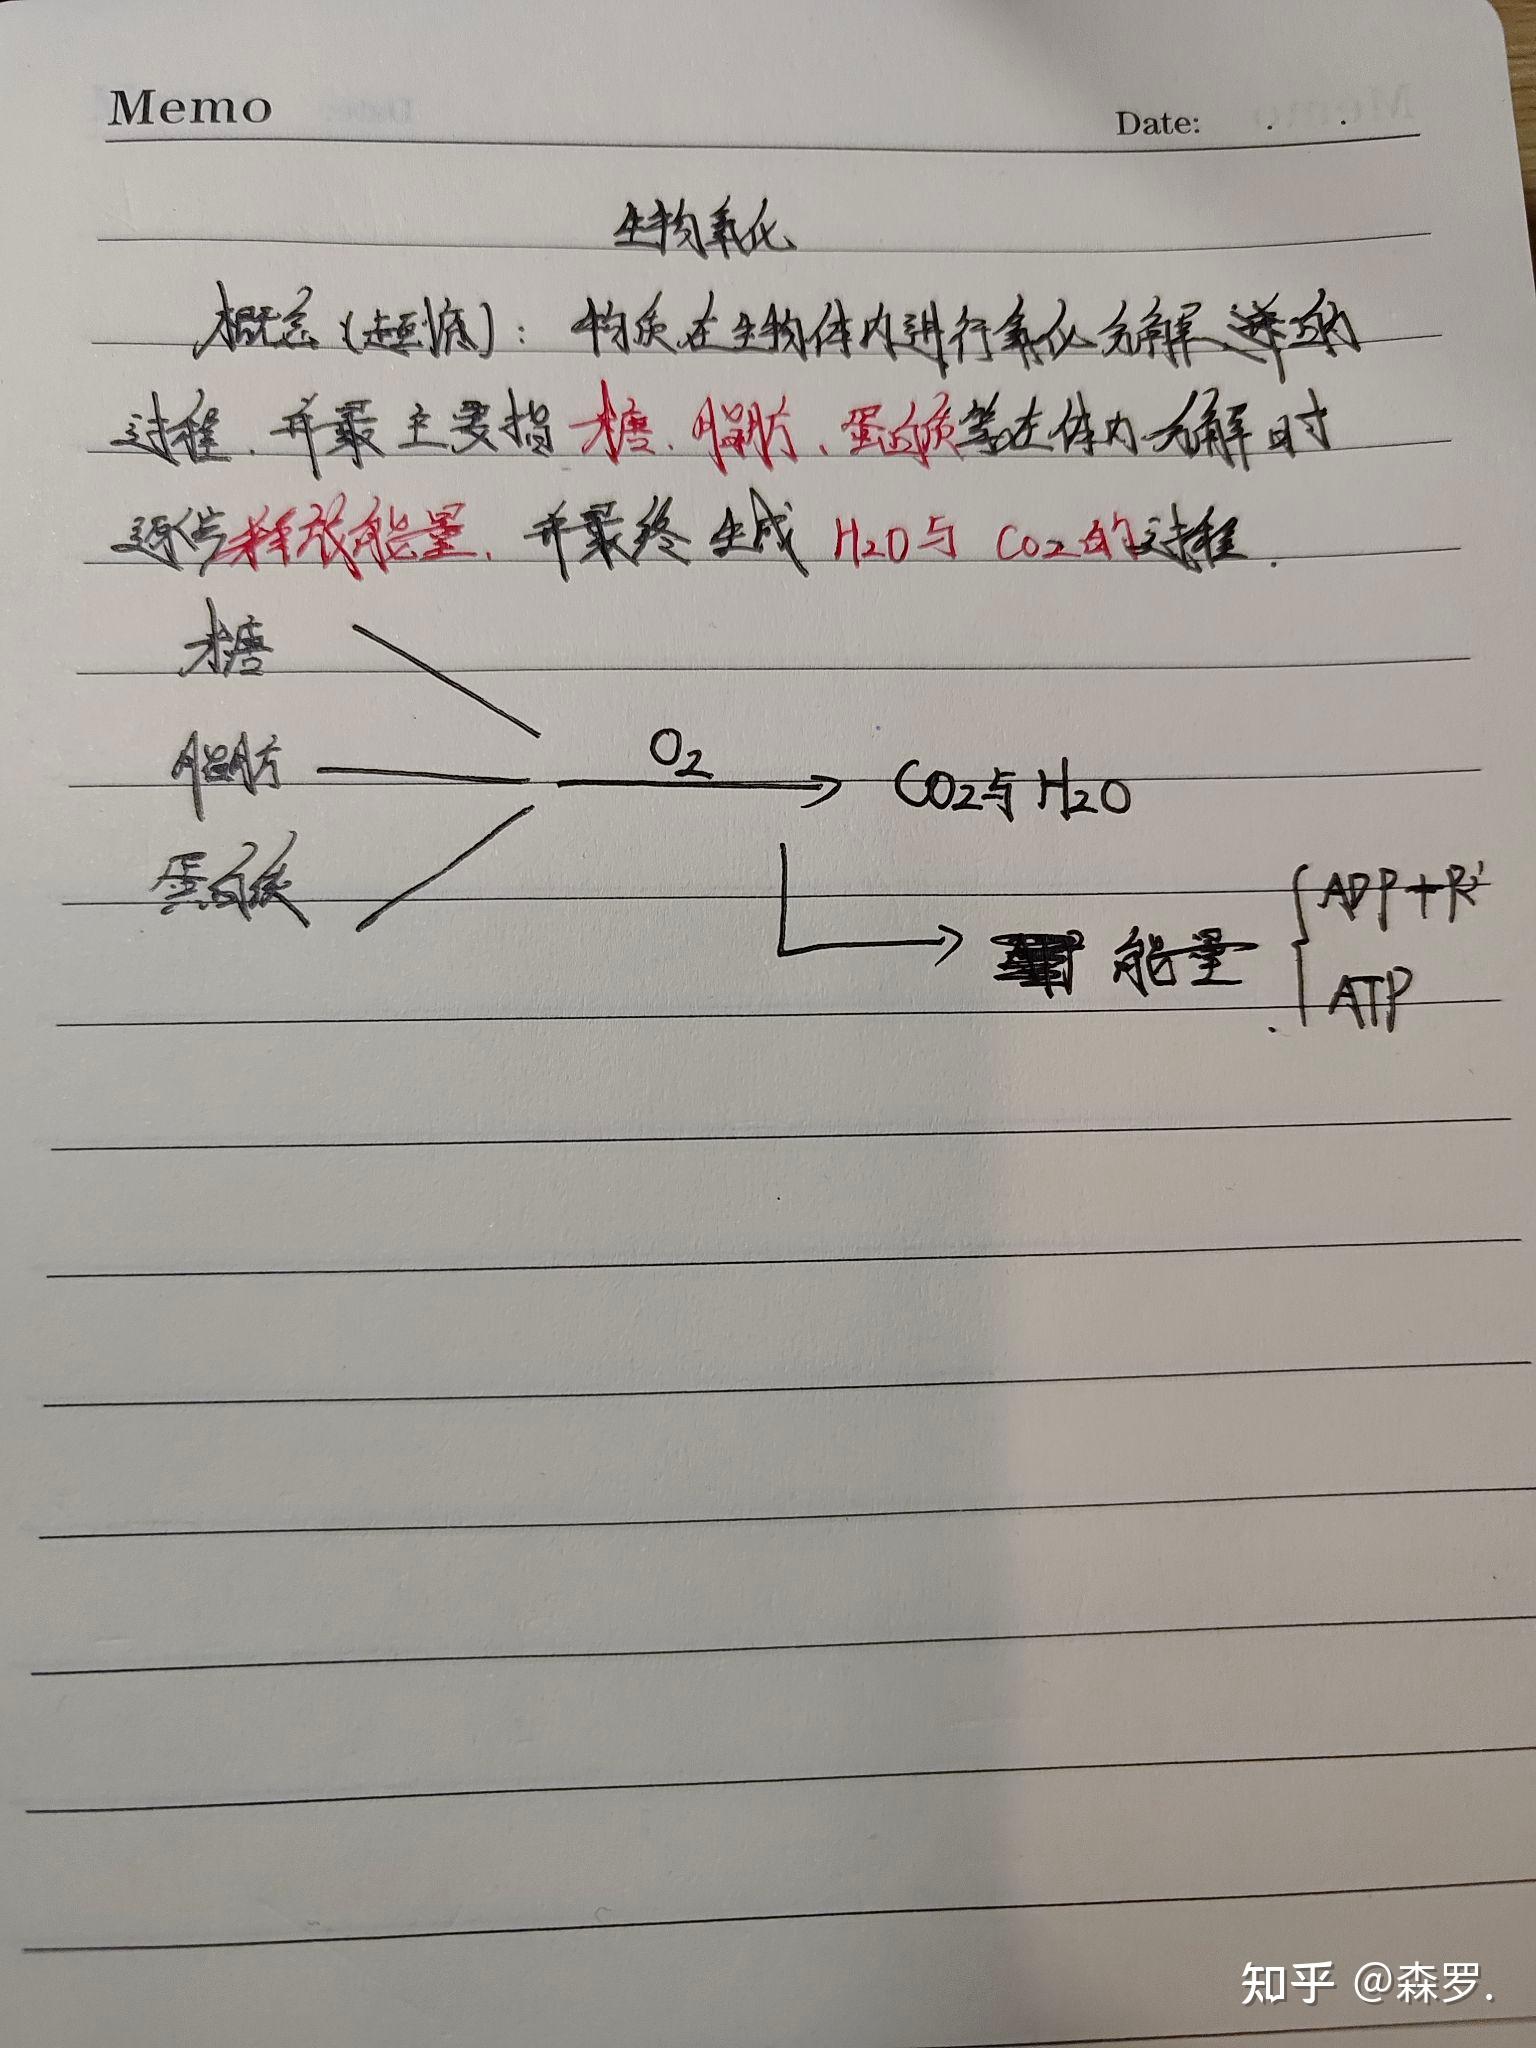 Memo
Date: . .
生物氧化
概念(超慎): 物质在生物体内进行氧化分解 的
过程. 并最主要指 糖、脂肪、蛋白质等在体内分解时
逐步释放能量, 并最终生成 H2O与 CO2的过程.
糖
脂肪 O2 CO2与H2O
蛋白质
ADP+Pi
能量
ATP
知乎 @森罗.